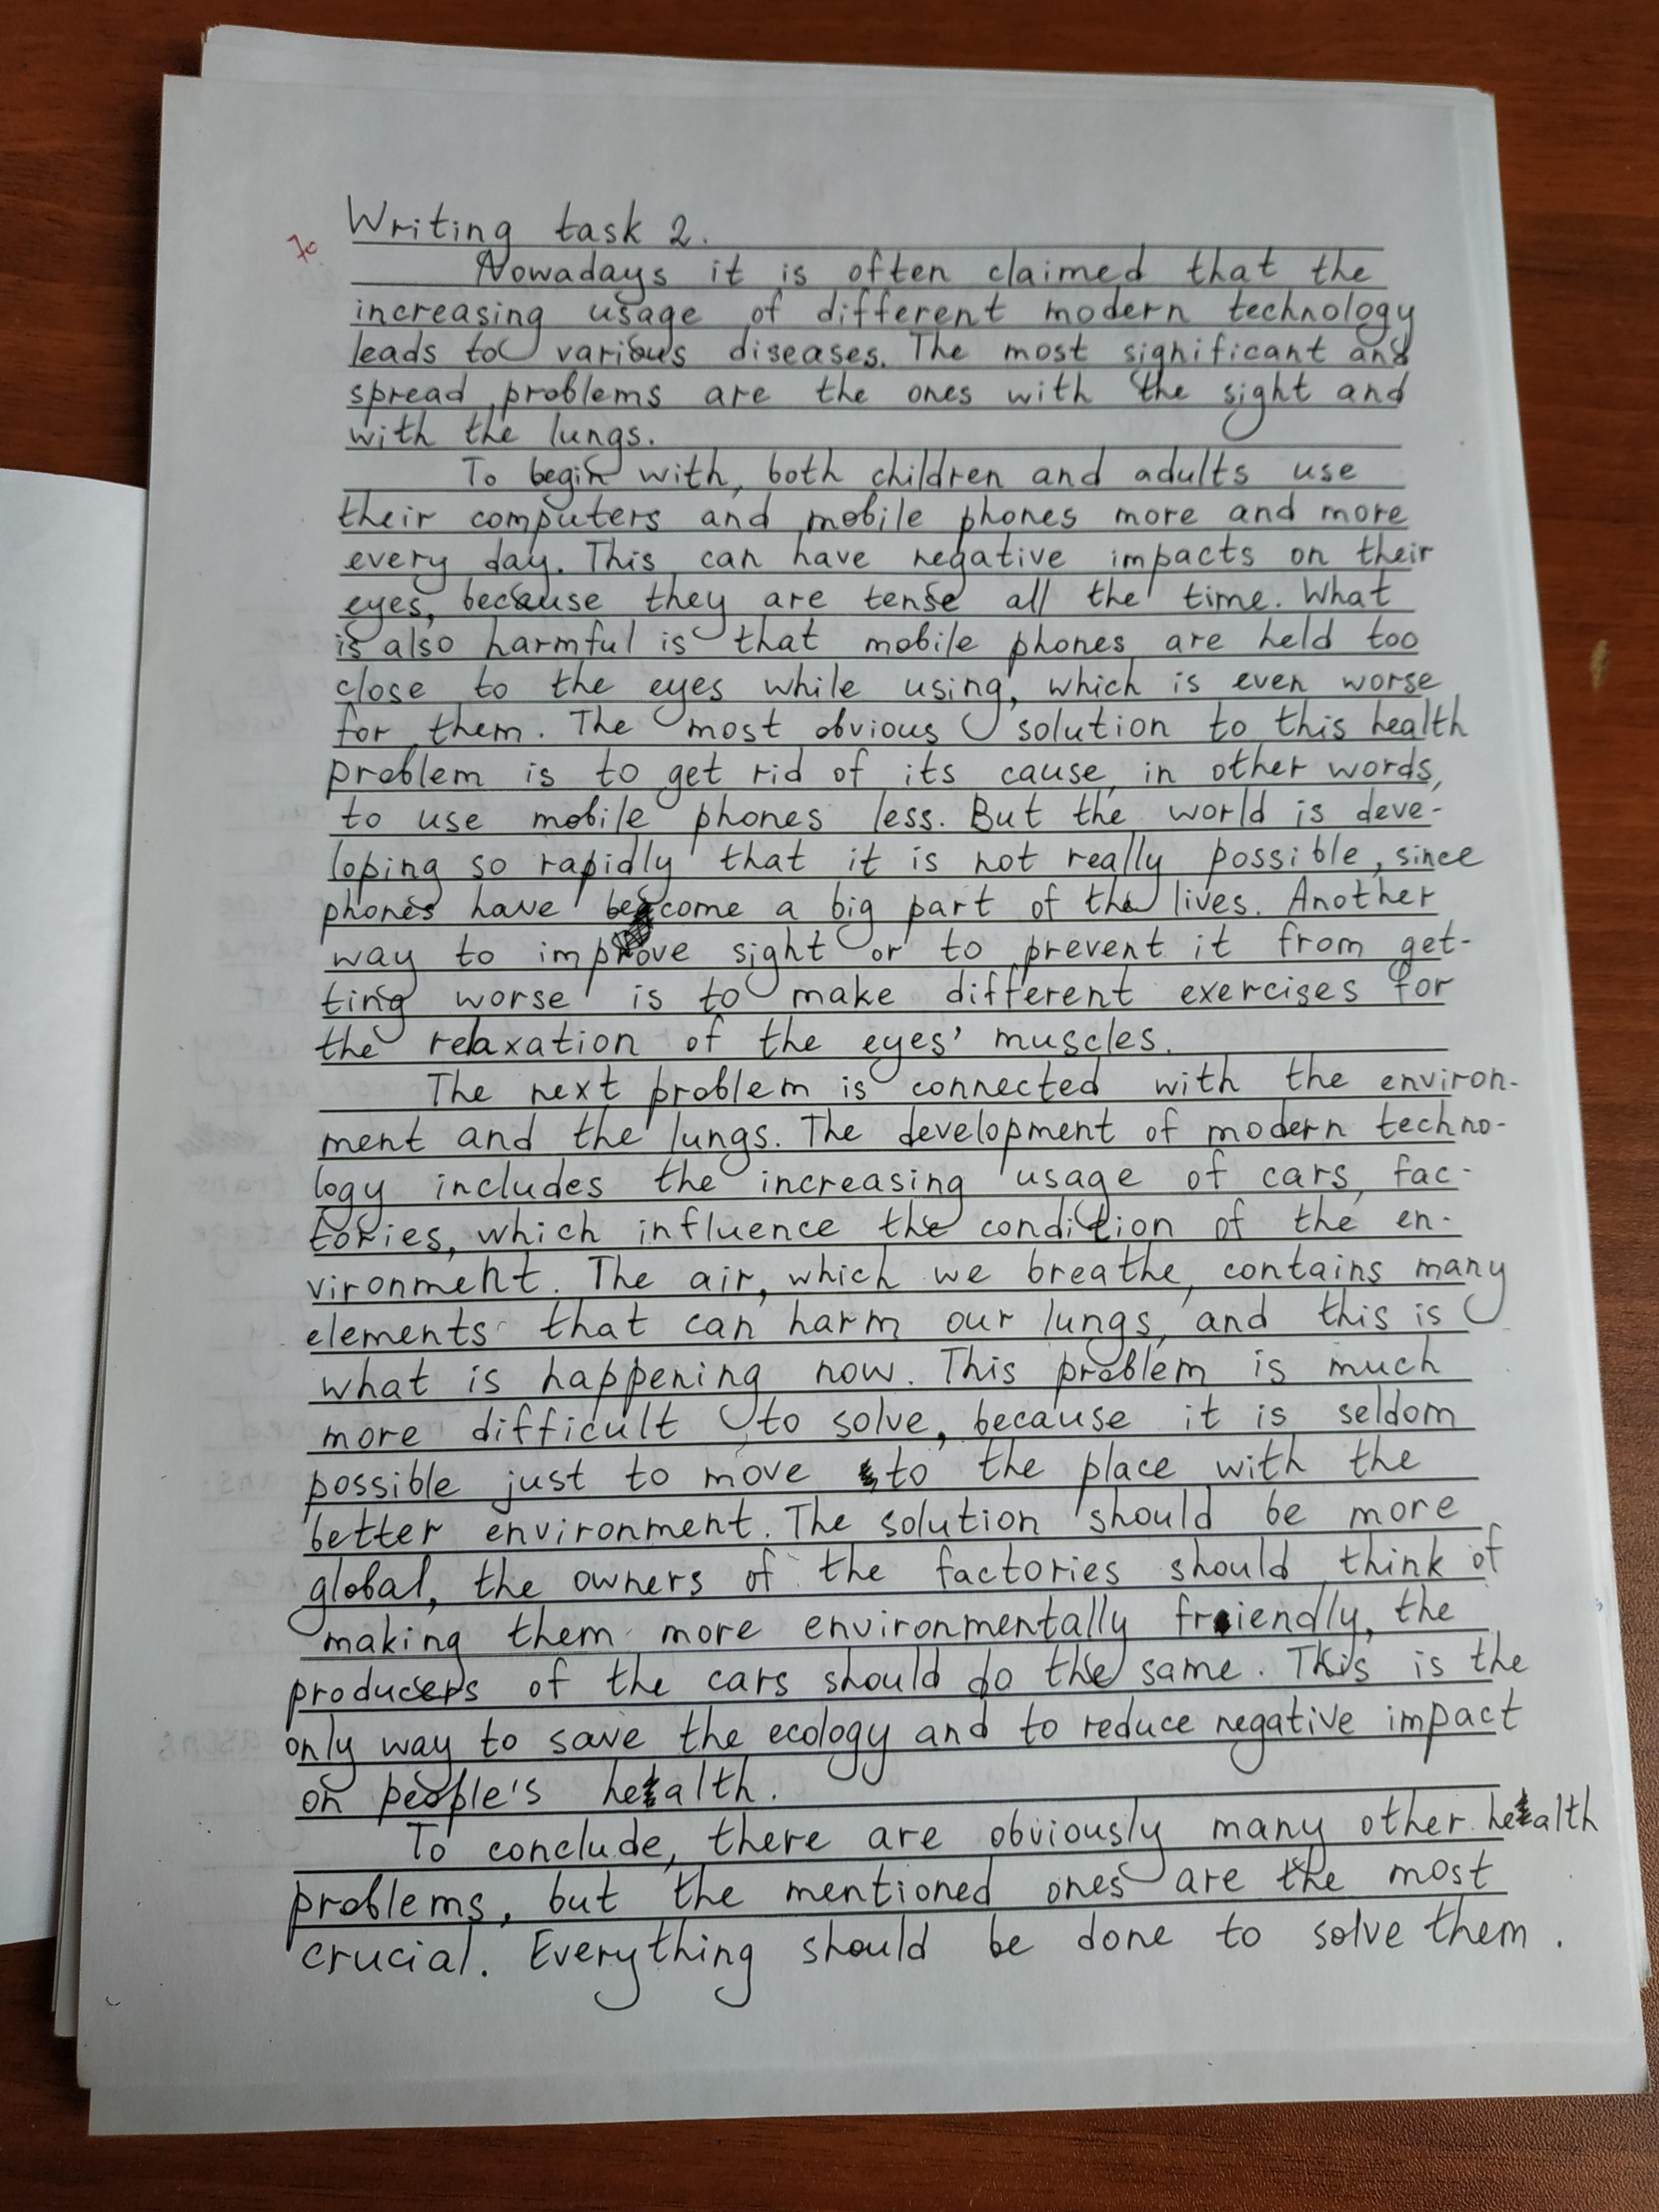 Writing task 2.
70
Nowadays it is often claimed that the
increasing usage of different modern technology
leads to various diseases. The most significant and
spread problems are the ones with the sight and
with the lungs.
To begin with, both children and adults use
their computers and mobile phones more and more
every day. This can have negative impacts on their
eyes, because they are tense all the time. What
is also harmful is that mobile phones are held too
close to the eyes while using, which is even worse
for them. The most obvious solution to this health
problem is to get rid of its cause, in other words,
to use mobile phones less. But the world is deve-
loping so rapidly that it is not really possible, since
phones have become a big part of the lives. Another
way to improve sight or to prevent it from get-
ting worse is to make different exercises for
the relaxation of the eyes' muscles.
The next problem is connected with the environ-
ment and the lungs. The development of modern techno-
logy includes the increasing usage of cars, fac-
tories, which influence the condition of the en-
vironment. The air, which we breathe, contains many
elements that can harm our lungs, and this is
what is happening now. This problem is much
more difficult to solve, because it is seldom
possible just to move to the place with the
better environment. The solution should be more
global, the owners of the factories should think of
making them more environmentally friendly, the
producers of the cars should do the same. This is the
only way to save the ecology and to reduce negative impact
on people's health.
To conclude, there are obviously many other health
problems, but the mentioned ones are the most
crucial. Everything should be done to solve them.